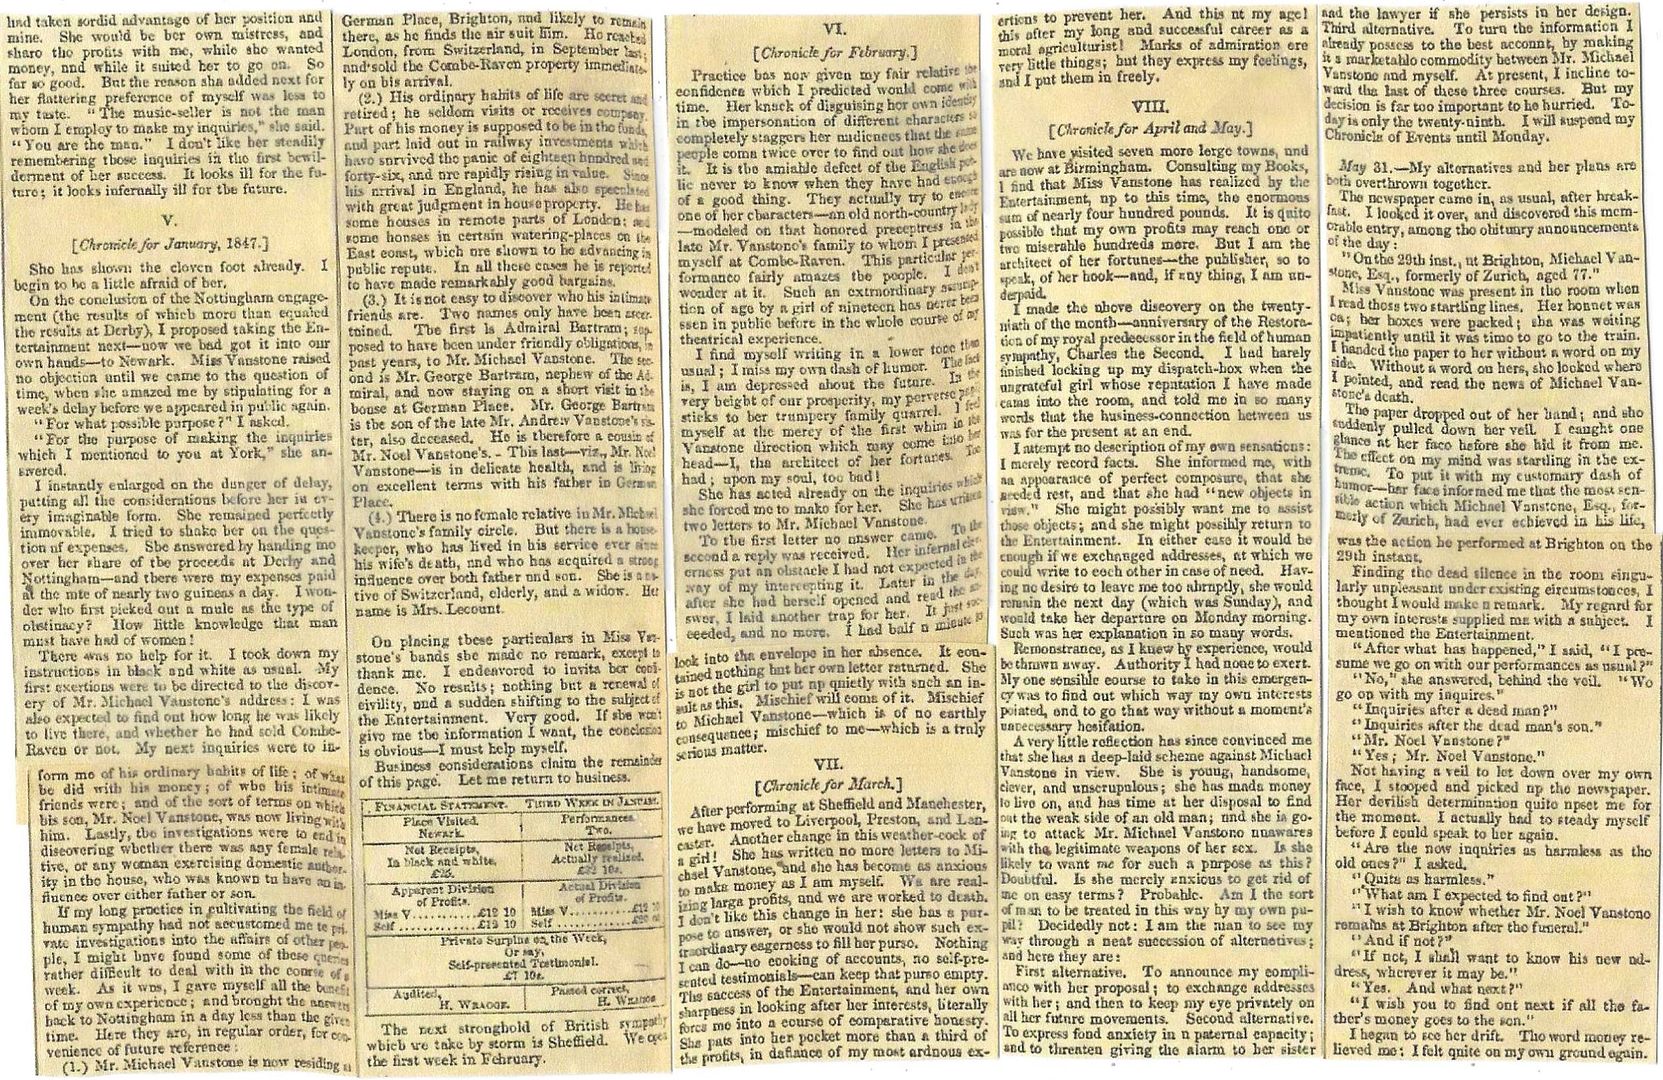 had taken sordid advantage of her position and
mine. She would be her own mistress, and
share the profits with me, while she wanted
money, and while it suited her to go on. So
far so good. But the reason she added next for
her flattering preference of myself was less to
my taste. "The music-seller is not the man
whom I employ to make my inquiries," she said.
"You are the man." I don't like her steadily
remembering those inquiries in the first bewil-
derment of her success. It looks ill for the fu-
ture; it looks infernally ill for the future.
V.
[Chronicle for January, 1847.]
She has shown the cloven foot already. I
begin to be a little afraid of her.
On the conclusion of the Nottingham engage-
ment (the results of which more than equaled
the results at Derby), I proposed taking the En-
tertainment next—now we had got it into our
own hands—to Newark. Miss Vanstone raised
no objection until we came to the question of
time, when she amazed me by stipulating for a
week's delay before we appeared in public again.
"For what possible purpose?" I asked.
"For the purpose of making the inquiries
which I mentioned to you at York," she an-
swered.
I instantly enlarged on the danger of delay,
putting all the considerations before her in ev-
ery imaginable form. She remained perfectly
immovable. I tried to shake her on the ques-
tion of expenses. She answered by handing me
over her share of the proceeds at Derby and
Nottingham—and there were my expenses paid
at the rate of nearly two guineas a day. I won-
der who first picked out a mule as the type of
obstinacy? How little knowledge that man
must have had of women!
There was no help for it. I took down my
instructions in black and white as usual. My
first exertions were to be directed to the discov-
ery of Mr. Michael Vanstone's address: I was
also expected to find out how long he was likely
to live there, and whether he had sold Combe-
Raven or not. My next inquiries were to in-
form me of his ordinary habits of life; of what
he did with his money; of who his intimate
friends were; and of the sort of terms on which
his son, Mr. Noel Vanstone, was now living with
him. Lastly, the investigations were to end in
discovering whether there was any female rela-
tive, or any woman exercising domestic author-
ity in the house, who was known to have an in-
fluence over either father or son.
If my long practice in cultivating the field of
human sympathy had not accustomed me to pri-
vate investigations into the affairs of other peo-
ple, I might have found some of these queries
rather difficult to deal with in the course of a
week. As it was, I gave myself all the benefit
of my own experience; and brought the answers
back to Nottingham in a day less than the given
time. Here they are, in regular order, for con-
venience of future reference:
(1.) Mr. Michael Vanstone is now residing at
German Place, Brighton, and likely to remain
there, as he finds the air suit him. He reached
London, from Switzerland, in September last;
and sold the Combe-Raven property immediate-
ly on his arrival.
(2.) His ordinary habits of life are secret and
retired; he seldom visits or receives company.
Part of his money is supposed to be in the funds,
and part laid out in railway investments which
have survived the panic of eighteen hundred and
forty-six, and are rapidly rising in value. Since
his arrival in England, he has also speculated
with great judgment in house property. He has
some houses in remote parts of London; and
some houses in certain watering-places on the
East coast, which are shown to be advancing in
public repute. In all these cases he is reported
to have made remarkably good bargains.
(3.) It is not easy to discover who his intimate
friends are. Two names only have been ascer-
tained. The first is Admiral Bartram; sup-
posed to have been under friendly obligations, in
past years, to Mr. Michael Vanstone. The sec-
ond is Mr. George Bartram, nephew of the Ad-
miral, and now staying on a short visit in the
house at German Place. Mr. George Bartram
is the son of the late Mr. Andrew Vanstone's sis-
ter, also deceased. He is therefore a cousin of
Mr. Noel Vanstone's. - This last—viz., Mr. Noel
Vanstone—is in delicate health, and is living
on excellent terms with his father in German
Place.
(4.) There is no female relative in Mr. Michael
Vanstone's family circle. But there is a house-
keeper, who has lived in his service ever since
his wife's death, and who has acquired a strong
influence over both father and son. She is a na-
tive of Switzerland, elderly, and a widow. Her
name is Mrs. Lecount.
On placing these particulars in Miss Van-
stone's hands she made no remark, except to
thank me. I endeavored to invite her confi-
dence. No results; nothing but a renewal of
civility, and a sudden shifting to the subject of
the Entertainment. Very good. If she won't
give me the information I want, the conclusion
is obvious—I must help myself.
Business considerations claim the remainder
of this page. Let me return to business.
FINANCIAL STATEMENT. THIRD WEEK IN JANUARY.
Place Visited, Performances
Newark. Two.
Net Receipts, Net Receipts,
In black and white, Actually realized.
£25. £32 10s.
Apparent Division Actual Division
of Profits. of Profits.
Miss V..........£12 10 Miss V..........£12 10
Self............£12 10 Self............£20 00
Private Surplus on the Week,
Or say,
Self-presented Testimonial.
£7 10s.
Audited, Passed correct,
H. WRAGGE. H. WRAGGE
The next stronghold of British sympathy
which we take by storm is Sheffield. We open
the first week in February.
VI.
[Chronicle for February.]
Practice has now given my fair relative the
confidence which I predicted would come with
time. Her knack of disguising her own identity
in the impersonation of different characters so
completely staggers her audiences that the same
people come twice over to find out how she does
it. It is the amiable defect of the English pub-
lic never to know when they have had enough
of a good thing. They actually try to encore
one of her characters—an old north-country lady
—modeled on that honored preceptress in the
late Mr. Vanstone's family to whom I presented
myself at Combe-Raven. This particular per-
formance fairly amazes the people. I don't
wonder at it. Such an extraordinary assump-
tion of age by a girl of nineteen has never been
seen in public before in the whole course of my
theatrical experience.
I find myself writing in a lower tone than
usual; I miss my own dash of humor. The fact
is, I am depressed about the future. In the
very height of our prosperity, my perverse pupil
sticks to her trumpery family quarrel. I feel
myself at the mercy of the first whim in the
Vanstone direction which may come into her
head—I, the architect of her fortunes. Too
bad; upon my soul, too bad!
She has acted already on the inquiries which
she forced me to make for her. She has written
two letters to Mr. Michael Vanstone.
To the first letter no answer came. To the
second a reply was received. Her infernal clev-
erness put an obstacle I had not expected in the
way of my intercepting it. Later in the day,
after she had herself opened and read the an-
swer, I laid another trap for her. It just suc-
ceeded, and no more. I had half a minute to
look into the envelope in her absence. It con-
tained nothing but her own letter returned. She
is not the girl to put up quietly with such an in-
sult as this. Mischief will come of it. Mischief
to Michael Vanstone—which is of no earthly
consequence; mischief to me—which is a truly
serious matter.
VII.
[Chronicle for March.]
After performing at Sheffield and Manchester,
we have moved to Liverpool, Preston, and Lan-
caster. Another change in this weather-cock of
a girl! She has written no more letters to Mi-
chael Vanstone, and she has become as anxious
to make money as I am myself. We are real-
izing large profits, and we are worked to death.
I don't like this change in her: she has a pur-
pose to answer, or she would not show such ex-
traordinary eagerness to fill her purse. Nothing
I can do—no cooking of accounts, no self-pre-
sented testimonials—can keep that purse empty.
The success of the Entertainment, and her own
sharpness in looking after her interests, literally
force me into a course of comparative honesty.
She puts into her pocket more than a third of
the profits, in defiance of my most arduous ex-
ertions to prevent her. And this at my age!
this after my long and successful career as a
moral agriculturist! Marks of admiration are
very little things; but they express my feelings,
and I put them in freely.
VIII.
[Chronicle for April and May.]
We have visited seven more large towns, and
are now at Birmingham. Consulting my Books,
I find that Miss Vanstone has realized by the
Entertainment, up to this time, the enormous
sum of nearly four hundred pounds. It is quite
possible that my own profits may reach one or
two miserable hundreds more. But I am the
architect of her fortunes—the publisher, so to
speak, of her book—and, if any thing, I am un-
derpaid.
I made the above discovery on the twenty-
ninth of the month—anniversary of the Restora-
tion of my royal predecessor in the field of human
sympathy, Charles the Second. I had barely
finished locking up my dispatch-box when the
ungrateful girl whose reputation I have made
came into the room, and told me in so many
words that the business-connection between us
was for the present at an end.
I attempt no description of my own sensations:
I merely record facts. She informed me, with
an appearance of perfect composure, that she
needed rest, and that she had "new objects in
view." She might possibly want me to assist
those objects; and she might possibly return to
the Entertainment. In either case it would be
enough if we exchanged addresses, at which we
could write to each other in case of need. Hav-
ing no desire to leave me too abruptly, she would
remain the next day (which was Sunday), and
would take her departure on Monday morning.
Such was her explanation in so many words.
Remonstrance, as I knew by experience, would
be thrown away. Authority I had none to exert.
My one sensible course to take in this emergen-
cy was to find out which way my own interests
pointed, and to go that way without a moment's
unnecessary hesitation.
A very little reflection has since convinced me
that she has a deep-laid scheme against Michael
Vanstone in view. She is young, handsome,
clever, and unscrupulous; she has made money
to live on, and has time at her disposal to find
out the weak side of an old man; and she is go-
ing to attack Mr. Michael Vanstone unawares
with the legitimate weapons of her sex. Is she
likely to want me for such a purpose as this?
Doubtful. Is she merely anxious to get rid of
me on easy terms? Probable. Am I the sort
of man to be treated in this way by my own pu-
pil? Decidedly not: I am the man to see my
way through a neat succession of alternatives;
and here they are:
First alternative. To announce my compli-
ance with her proposal; to exchange addresses
with her; and then to keep my eye privately on
all her future movements. Second alternative.
To express fond anxiety in a paternal capacity;
and to threaten giving the alarm to her sister
and the lawyer if she persists in her design.
Third alternative. To turn the information I
already possess to the best account, by making
it a marketable commodity between Mr. Michael
Vanstone and myself. At present, I incline to-
ward the last of these three courses. But my
decision is far too important to be hurried. To-
day is only the twenty-ninth. I will suspend my
Chronicle of Events until Monday.
May 31.—My alternatives and her plans are
both overthrown together.
The newspaper came in, as usual, after break-
fast. I looked it over, and discovered this mem-
orable entry, among the obituary announcements
of the day:
"On the 29th inst., at Brighton, Michael Van-
stone, Esq., formerly of Zurich, aged 77."
Miss Vanstone was present in the room when
I read those two startling lines. Her bonnet was
on; her boxes were packed; she was waiting
impatiently until it was time to go to the train.
I handed the paper to her without a word on my
side. Without a word on hers, she looked where
I pointed, and read the news of Michael Van-
stone's death.
The paper dropped out of her hand; and she
suddenly pulled down her veil. I caught one
glance at her face before she hid it from me.
The effect on my mind was startling in the ex-
treme. To put it with my customary dash of
humor—her face informed me that the most sen-
sible action which Michael Vanstone, Esq., for-
merly of Zurich, had ever achieved in his life,
was the action he performed at Brighton on the
29th instant.
Finding the dead silence in the room singu-
larly unpleasant under existing circumstances, I
thought I would make a remark. My regard for
my own interests supplied me with a subject. I
mentioned the Entertainment.
"After what has happened," I said, "I pre-
sume we go on with our performances as usual?"
"No," she answered, behind the veil. "We
go on with my inquires."
"Inquiries after a dead man?"
"Inquiries after the dead man's son."
"Mr. Noel Vanstone?"
"Yes; Mr. Noel Vanstone."
Not having a veil to let down over my own
face, I stooped and picked up the newspaper.
Her devilish determination quite upset me for
the moment. I actually had to steady myself
before I could speak to her again.
"Are the new inquiries as harmless as the
old ones?" I asked.
"Quite as harmless."
"What am I expected to find out?"
"I wish to know whether Mr. Noel Vanstone
remains at Brighton after the funeral."
"And if not?"
"If not, I shall want to know his new ad-
dress, wherever it may be."
"Yes. And what next?"
"I wish you to find out next if all the fa-
ther's money goes to the son."
I began to see her drift. The word money re-
lieved me; I felt quite on my own ground again.